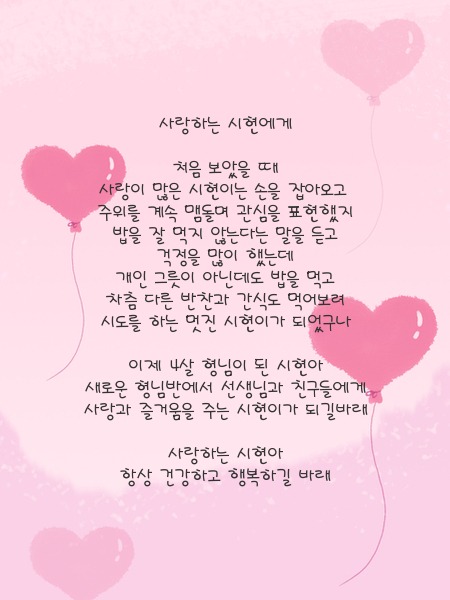 사랑하는 시현에게
처음 보았을 때
사랑이 많은 시현이는 손을 잡아오고
주위를 계속 맴돌며 관심을 표현했지
밥을 잘 먹지 않는다는 말을 듣고
걱정을 많이 했는데
개인 그릇이 아닌데도 밥을 먹고
차츰 다른 반찬과 간식도 먹어보려
시도를 하는 멋진 시현이가 되었구나
이제 4살 형님이 된 시현아
새로운 형님반에서 선생님과 친구들에게
사랑과 즐거움을 주는 시현이가 되길바래
사랑하는 시현아
항상 건강하고 행복하길 바래